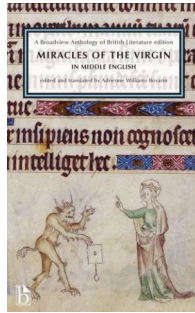 A Broadview Anthology of British Literature edition
MIRACLES OF THE VIRGIN
IN MIDDLE ENGLISH
edited and translated by Adrienne Williams Boyarin
insipiens non cognosc
intelliget hec
b